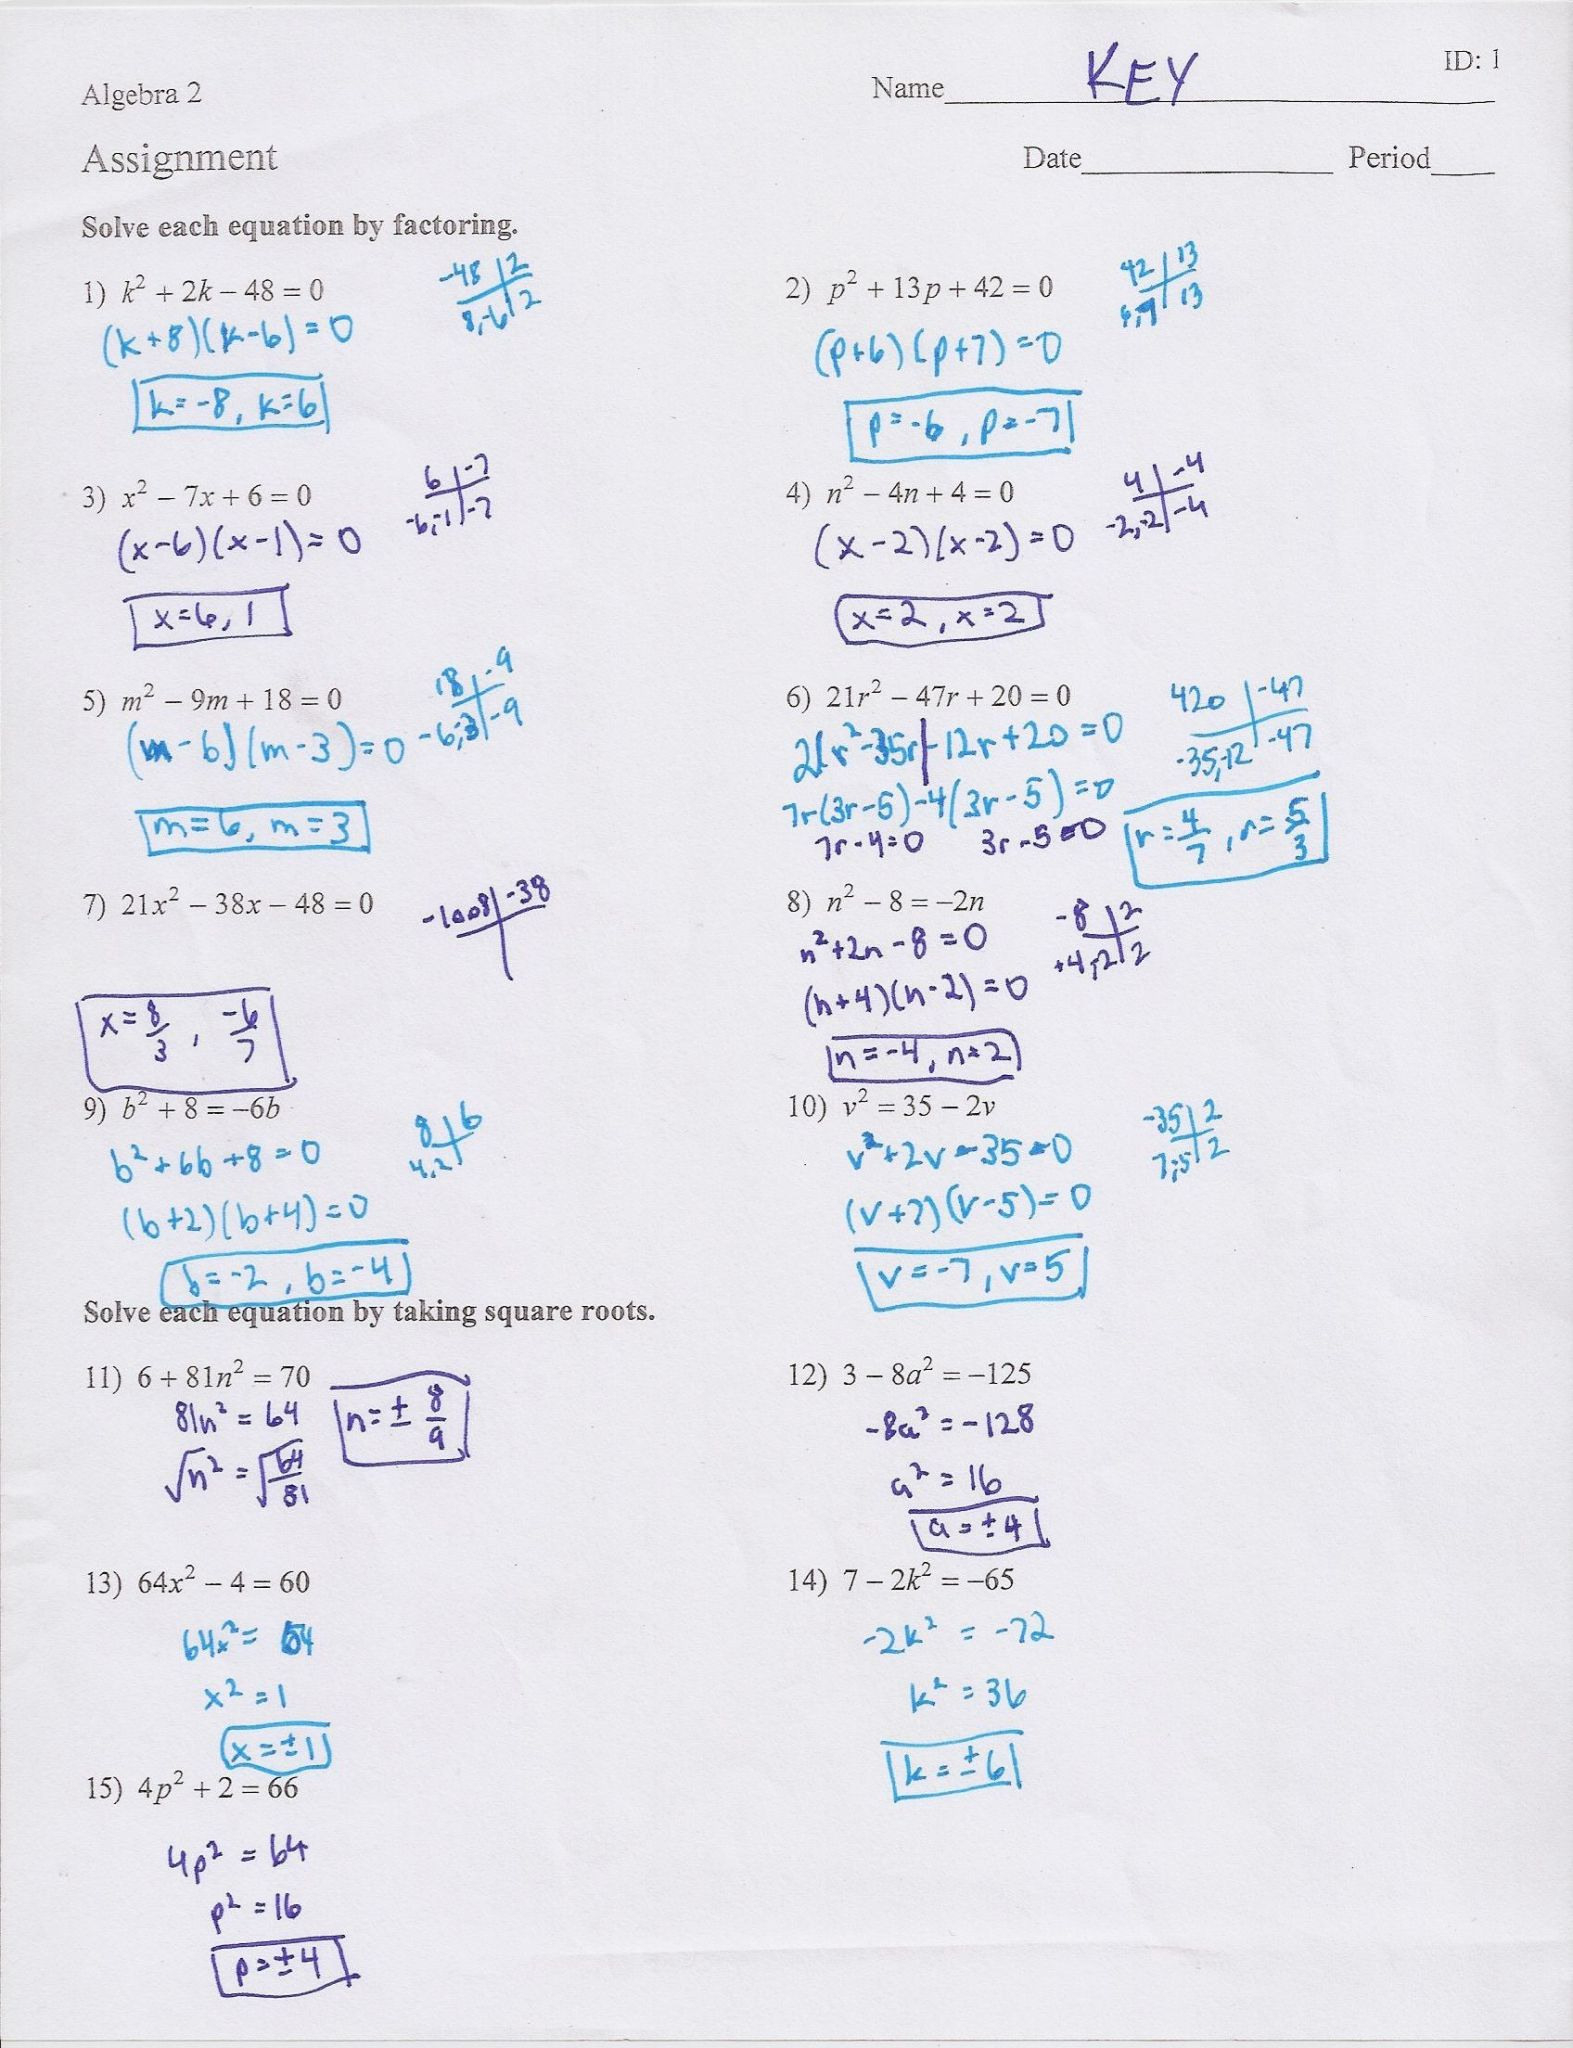 Algebra 2
Name KEY
ID: 1
Assignment
Date Period
Solve each equation by factoring.
1) k² + 2k – 48 = 0
-48 | 2
8, -6 | 2
(k+8)(k-6) = 0
k = -8, k = 6
2) p² + 13p + 42 = 0
42 | 13
6, 7 | 13
(p+6)(p+7) = 0
p = -6, p = -7
3) x² – 7x + 6 = 0
6 | -7
-6, -1 | -7
(x-6)(x-1) = 0
x = 6, 1
4) n² – 4n + 4 = 0
4 | -4
-2, -2 | -4
(x-2)(x-2) = 0
x = 2, x = 2
5) m² – 9m + 18 = 0
18 | -9
-6, -3 | -9
(m-6)(m-3) = 0
m = 6, m = 3
6) 21r² – 47r + 20 = 0
420 | -47
-35, -12 | -47
21r² - 35r | - 12r + 20 = 0
7r(3r-5) - 4(3r-5) = 0
7r-4=0 3r-5=0
r = 4/7, r = 5/3
7) 21x² – 38x – 48 = 0
-1008 | -38
x = 8/3, -6/7
8) n² – 8 = –2n
-8 | 2
+4, -2 | 2
n² + 2n - 8 = 0
(n+4)(n-2) = 0
n = -4, n = 2
9) b² + 8 = –6b
8 | 6
4, 2
b² + 6b + 8 = 0
(b+2)(b+4) = 0
b = -2, b = -4
10) v² = 35 – 2v
-35 | 2
7, -5 | 2
v² + 2v - 35 = 0
(v+7)(v-5) = 0
v = -7, v = 5
Solve each equation by taking square roots.
11) 6 + 81n² = 70
81n² = 64
√n² = √64/81
n = ± 8/9
12) 3 – 8a² = –125
-8a² = -128
a² = 16
a = ±4
13) 64x² – 4 = 60
64x² = 64
x² = 1
x = ±1
14) 7 – 2k² = –65
-2k² = -72
k² = 36
k = ±6
15) 4p² + 2 = 66
4p² = 64
p² = 16
p = ±4